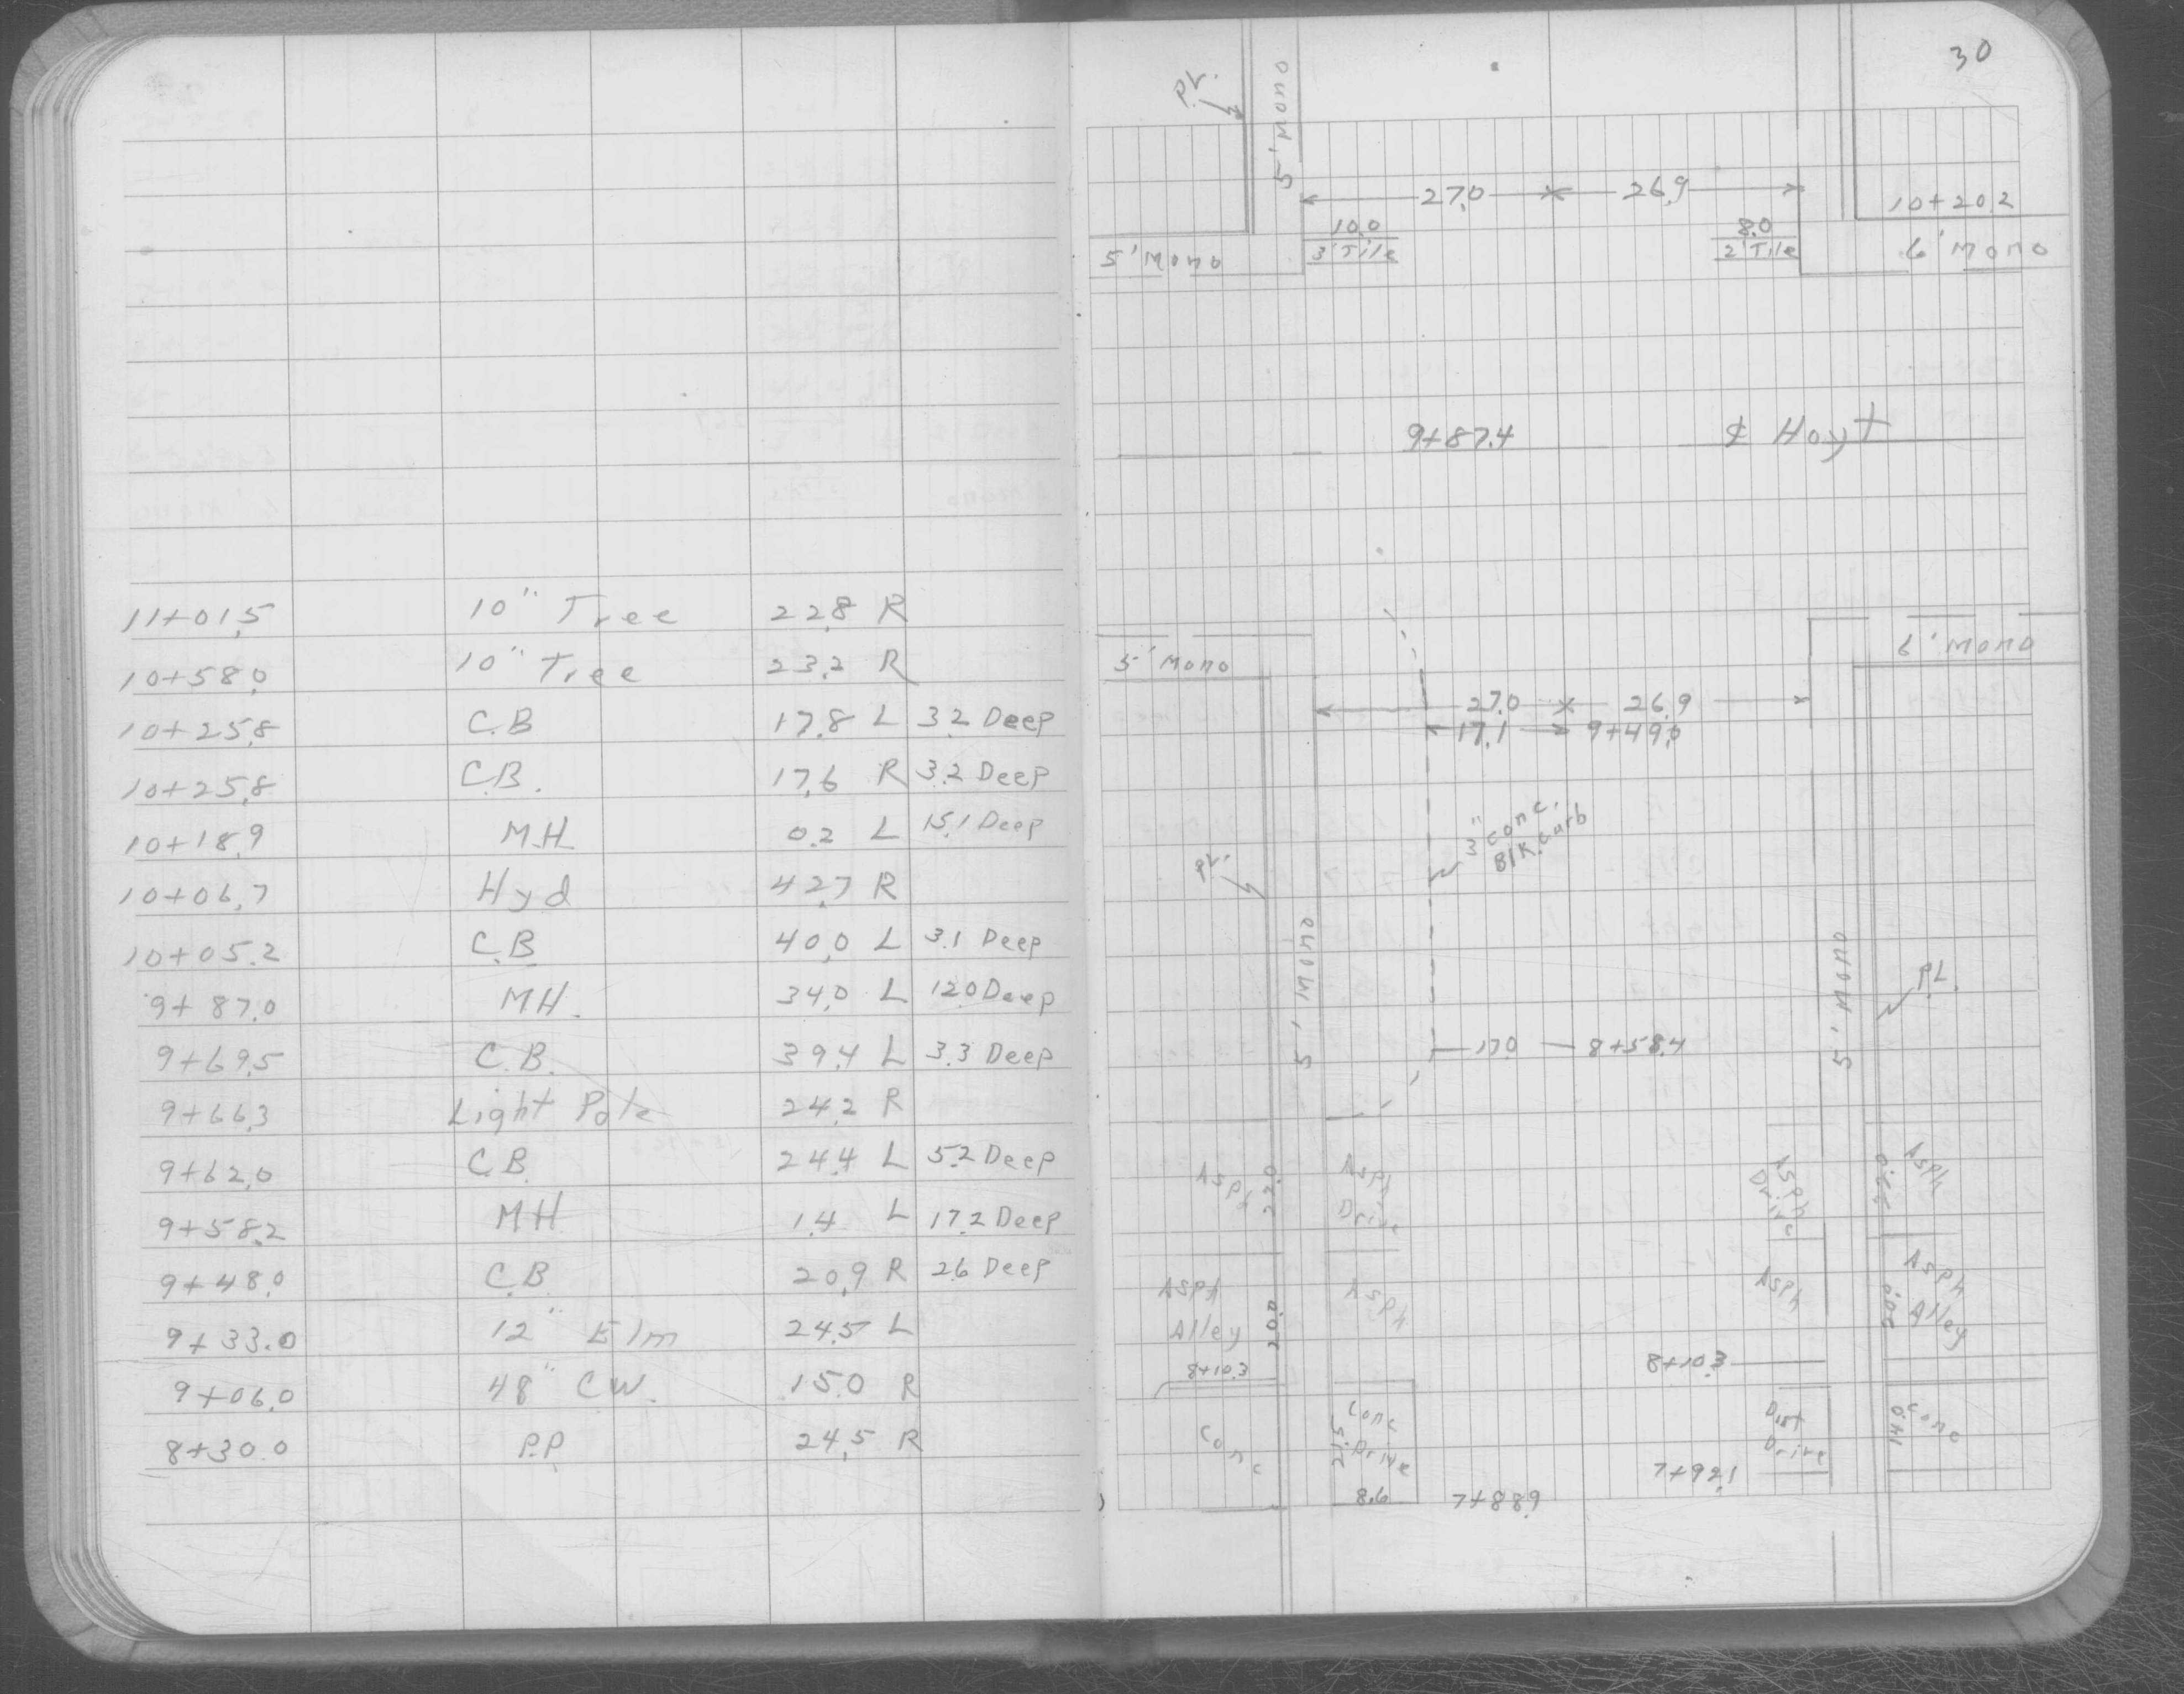 11+01.5 10" Tree 22.8 R
10+58.0 10" Tree 23.2 R
10+25.8 C.B 17.8 L 3.2 Deep
10+25.8 C.B. 17.6 R 3.2 Deep
10+18.9 M.H. 0.2 L 15.1 Deep
10+06.7 Hyd 42.7 R
10+05.2 C.B. 40.0 L 3.1 Deep
9+87.0 MH. 34.0 L 12.0 Deep
9+69.5 C.B. 39.4 L 3.3 Deep
9+66.3 Light Pole 24.2 R
9+62.0 C.B. 24.4 L 5.2 Deep
9+58.2 MH 1.4 L 17.2 Deep
9+48.0 C.B. 20.9 R 2.6 Deep
9+33.0 12" Elm 24.5 L
9+06.0 48" CW. 15.0 R
8+30.0 P.P. 24.5 R
30
PL.
5' Mono
27.0 26.9
10+20.2
10.0 8.0
5' Mono 3' Tile 2' Tile 6' Mono
9+87.4 ℄ Hoyt
5' Mono 6' Mono
27.0 26.9
17.1 9+49.0
3" conc.
Blk. curb
PL.
5' Mono 5' Mono
PL.
17.0 8+58.4
Asph 22.0 Asph Asph Asph
Drive Drive
Asph Asph Asph Asph
Alley 20.0 20.0 Alley
8+10.3 8+10.3
Conc Conc Dirt 14.0 Conc
21.5 Drive Drive
7+92.1
8.6 7+88.9